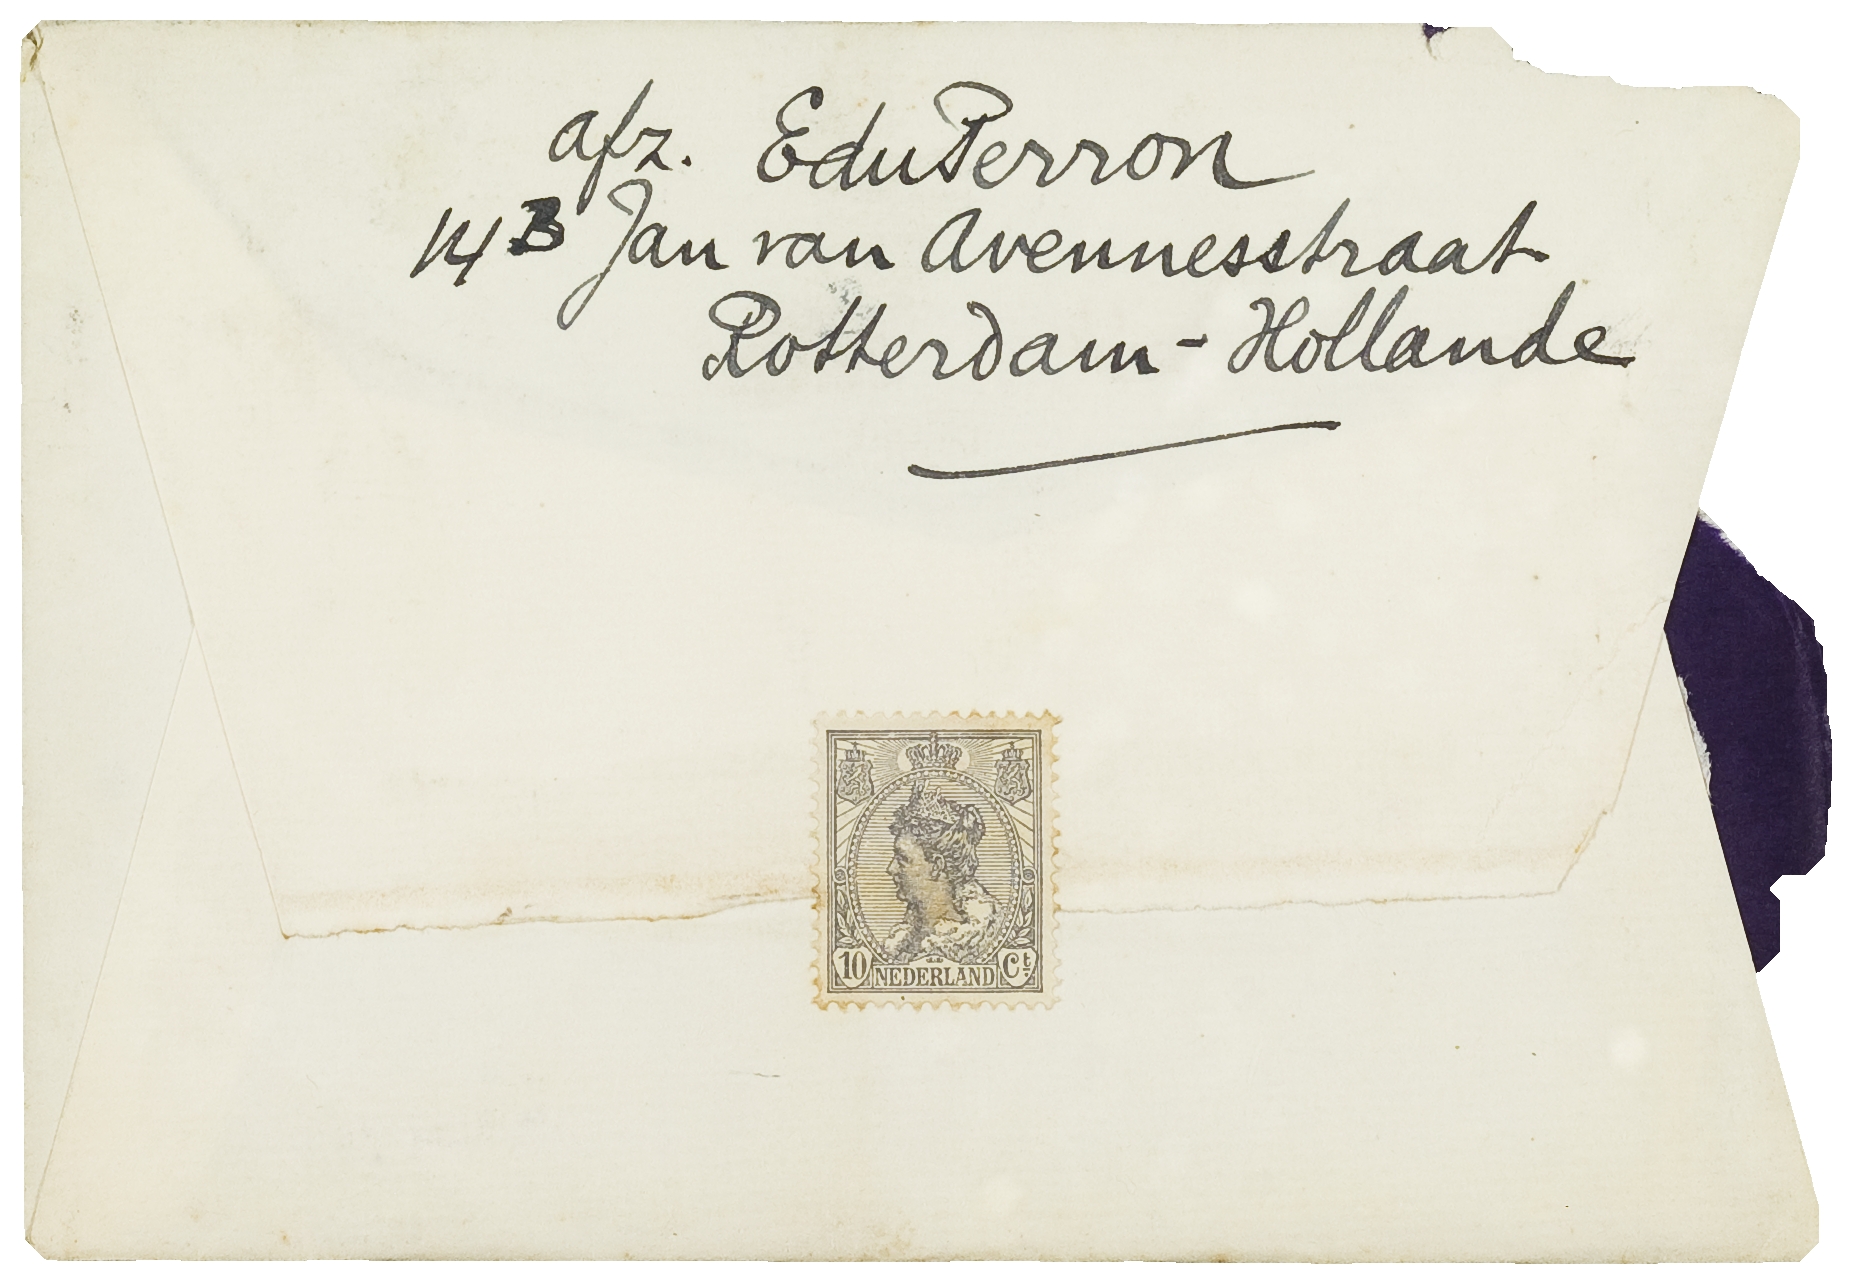 afz. EduPerron
14B Jan van Avennesstraat
Rotterdam - Hollande
10 NEDERLAND Ct.